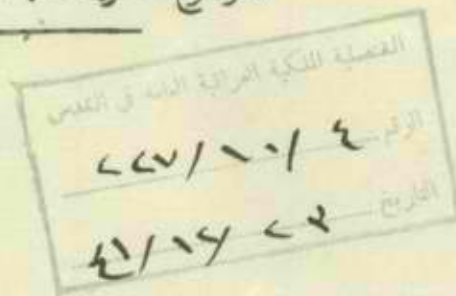 القنصلية الملكية العراقية العامة في القدس
الرقم ٤/١٠/٢٢٧
التاريخ ٢٣/١٢/٤١